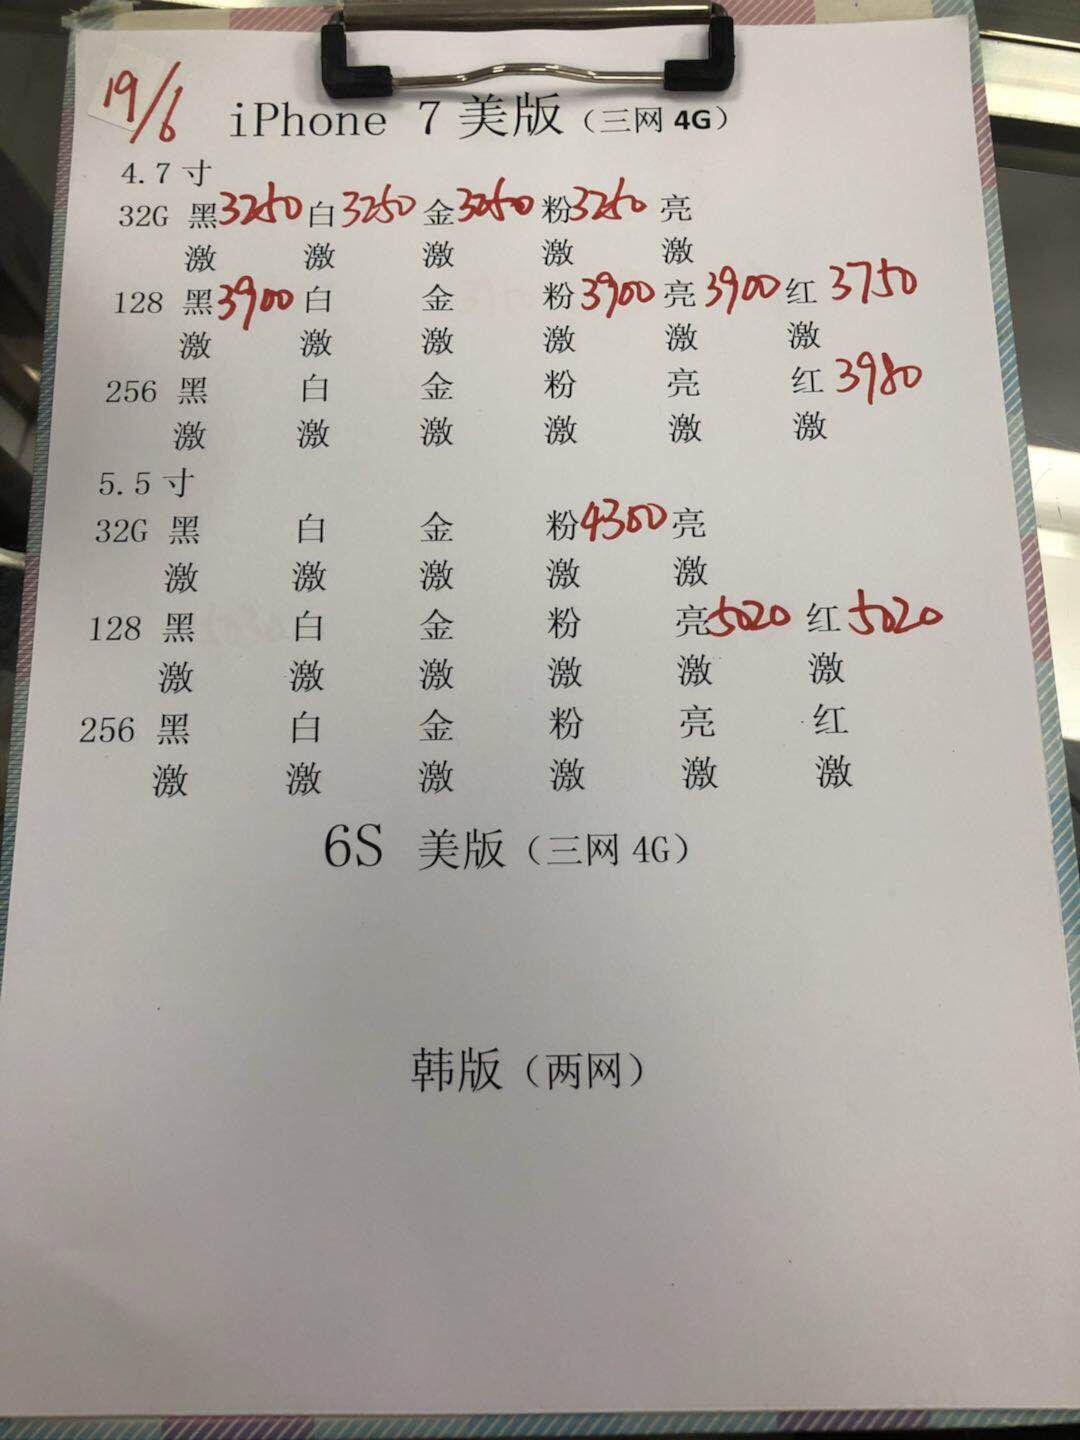 19/6
iPhone 7 美版（三网 4G）
4.7 寸
32G 黑 3250 白 3250 金 3250 粉 3250 亮
激 激 激 激 激
128 黑 3900 白 金 粉 3900 亮 3900 红 3750
激 激 激 激 激 激
256 黑 白 金 粉 亮 红 3980
激 激 激 激 激 激
5.5 寸
32G 黑 白 金 粉 4300 亮
激 激 激 激 激
128 黑 白 金 粉 亮 5020 红 5020
激 激 激 激 激 激
256 黑 白 金 粉 亮 红
激 激 激 激 激 激
6S 美版（三网 4G）
韩版（两网）